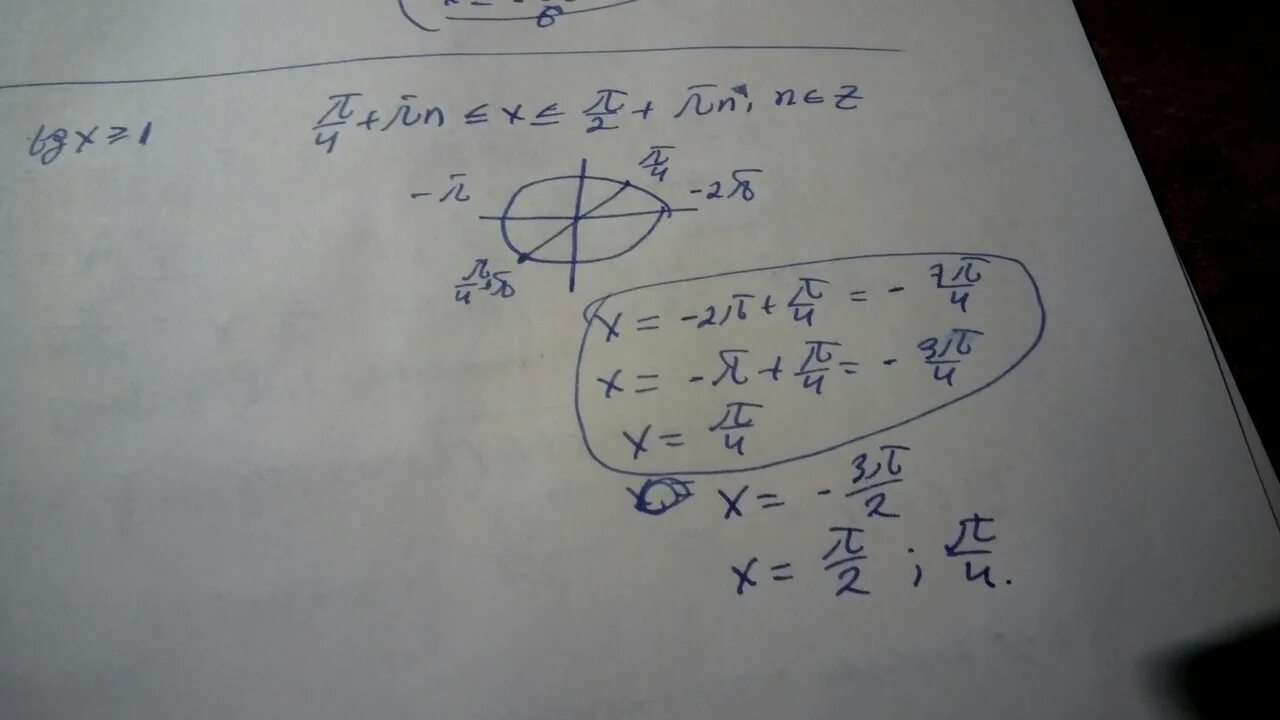 tg x ≥ 1
π/4 + πn ≤ x ≤ π/2 + πn, n ∈ Z
π/4
-π
-2π
π/4 + π
x = -2π + π/4 = - 7π/4
x = -π + π/4 = - 3π/4
x = π/4
x = - 3π/2
x = π/2 ; π/4.